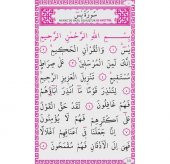 سُورَةُ يٰسٓ
بِسْمِ اللّٰهِ الرَّحْمٰنِ الرَّحِيمِ
يٰسٓ وَالْقُرْاٰنِ الْحَكِيمِ
اِنَّكَ لَمِنَ الْمُرْسَلِينَ عَلٰى صِرَاطٍ
مُسْتَقِيمٍ تَنْزِيلَ الْعَزِيزِ الرَّحِيمِ
لِتُنْذِرَ قَوْمًا مَا اُنْذِرَ اٰبَاؤُهُمْ
فَهُمْ غَافِلُونَ لَقَدْ حَقَّ الْقَوْلُ
عَلٰى اَكْثَرِهِمْ فَهُمْ لَا يُؤْمِنُونَ
اِنَّا جَعَلْنَا فِي اَعْنَاقِهِمْ اَغْلَالًا
فَهِيَ اِلَى الْاَذْقَانِ فَهُمْ مُقْمَحُونَ